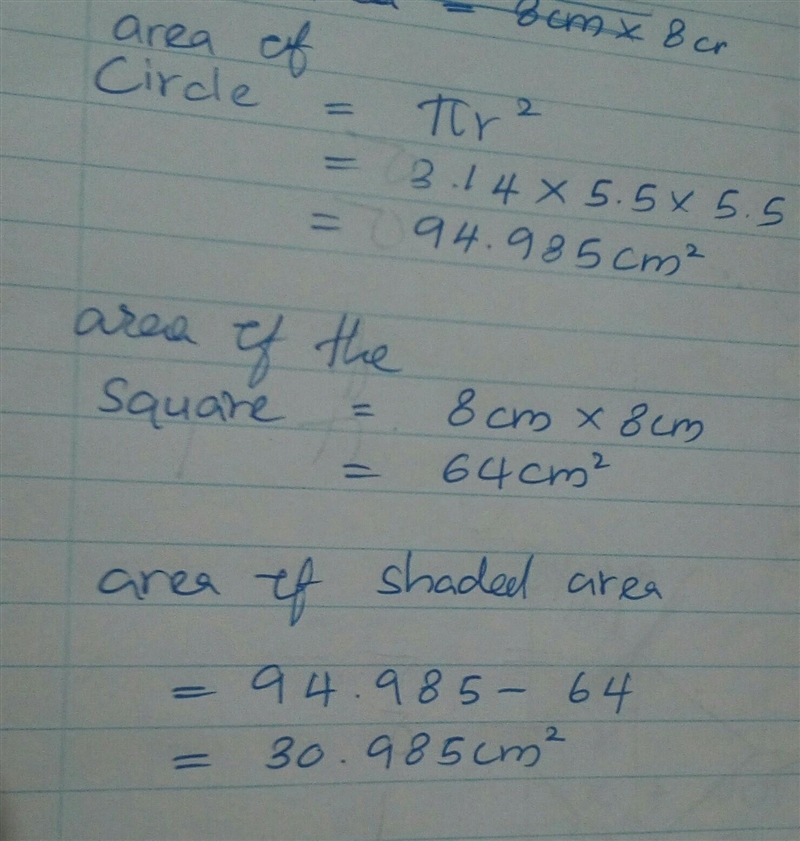 = 8cm x 8c
area of
Circle = πr²
= 3.14 x 5.5 x 5.5
= 94.985cm²
area of the
Square = 8cm x 8cm
= 64cm²
area of shaded area
= 94.985 - 64
= 30.985cm²